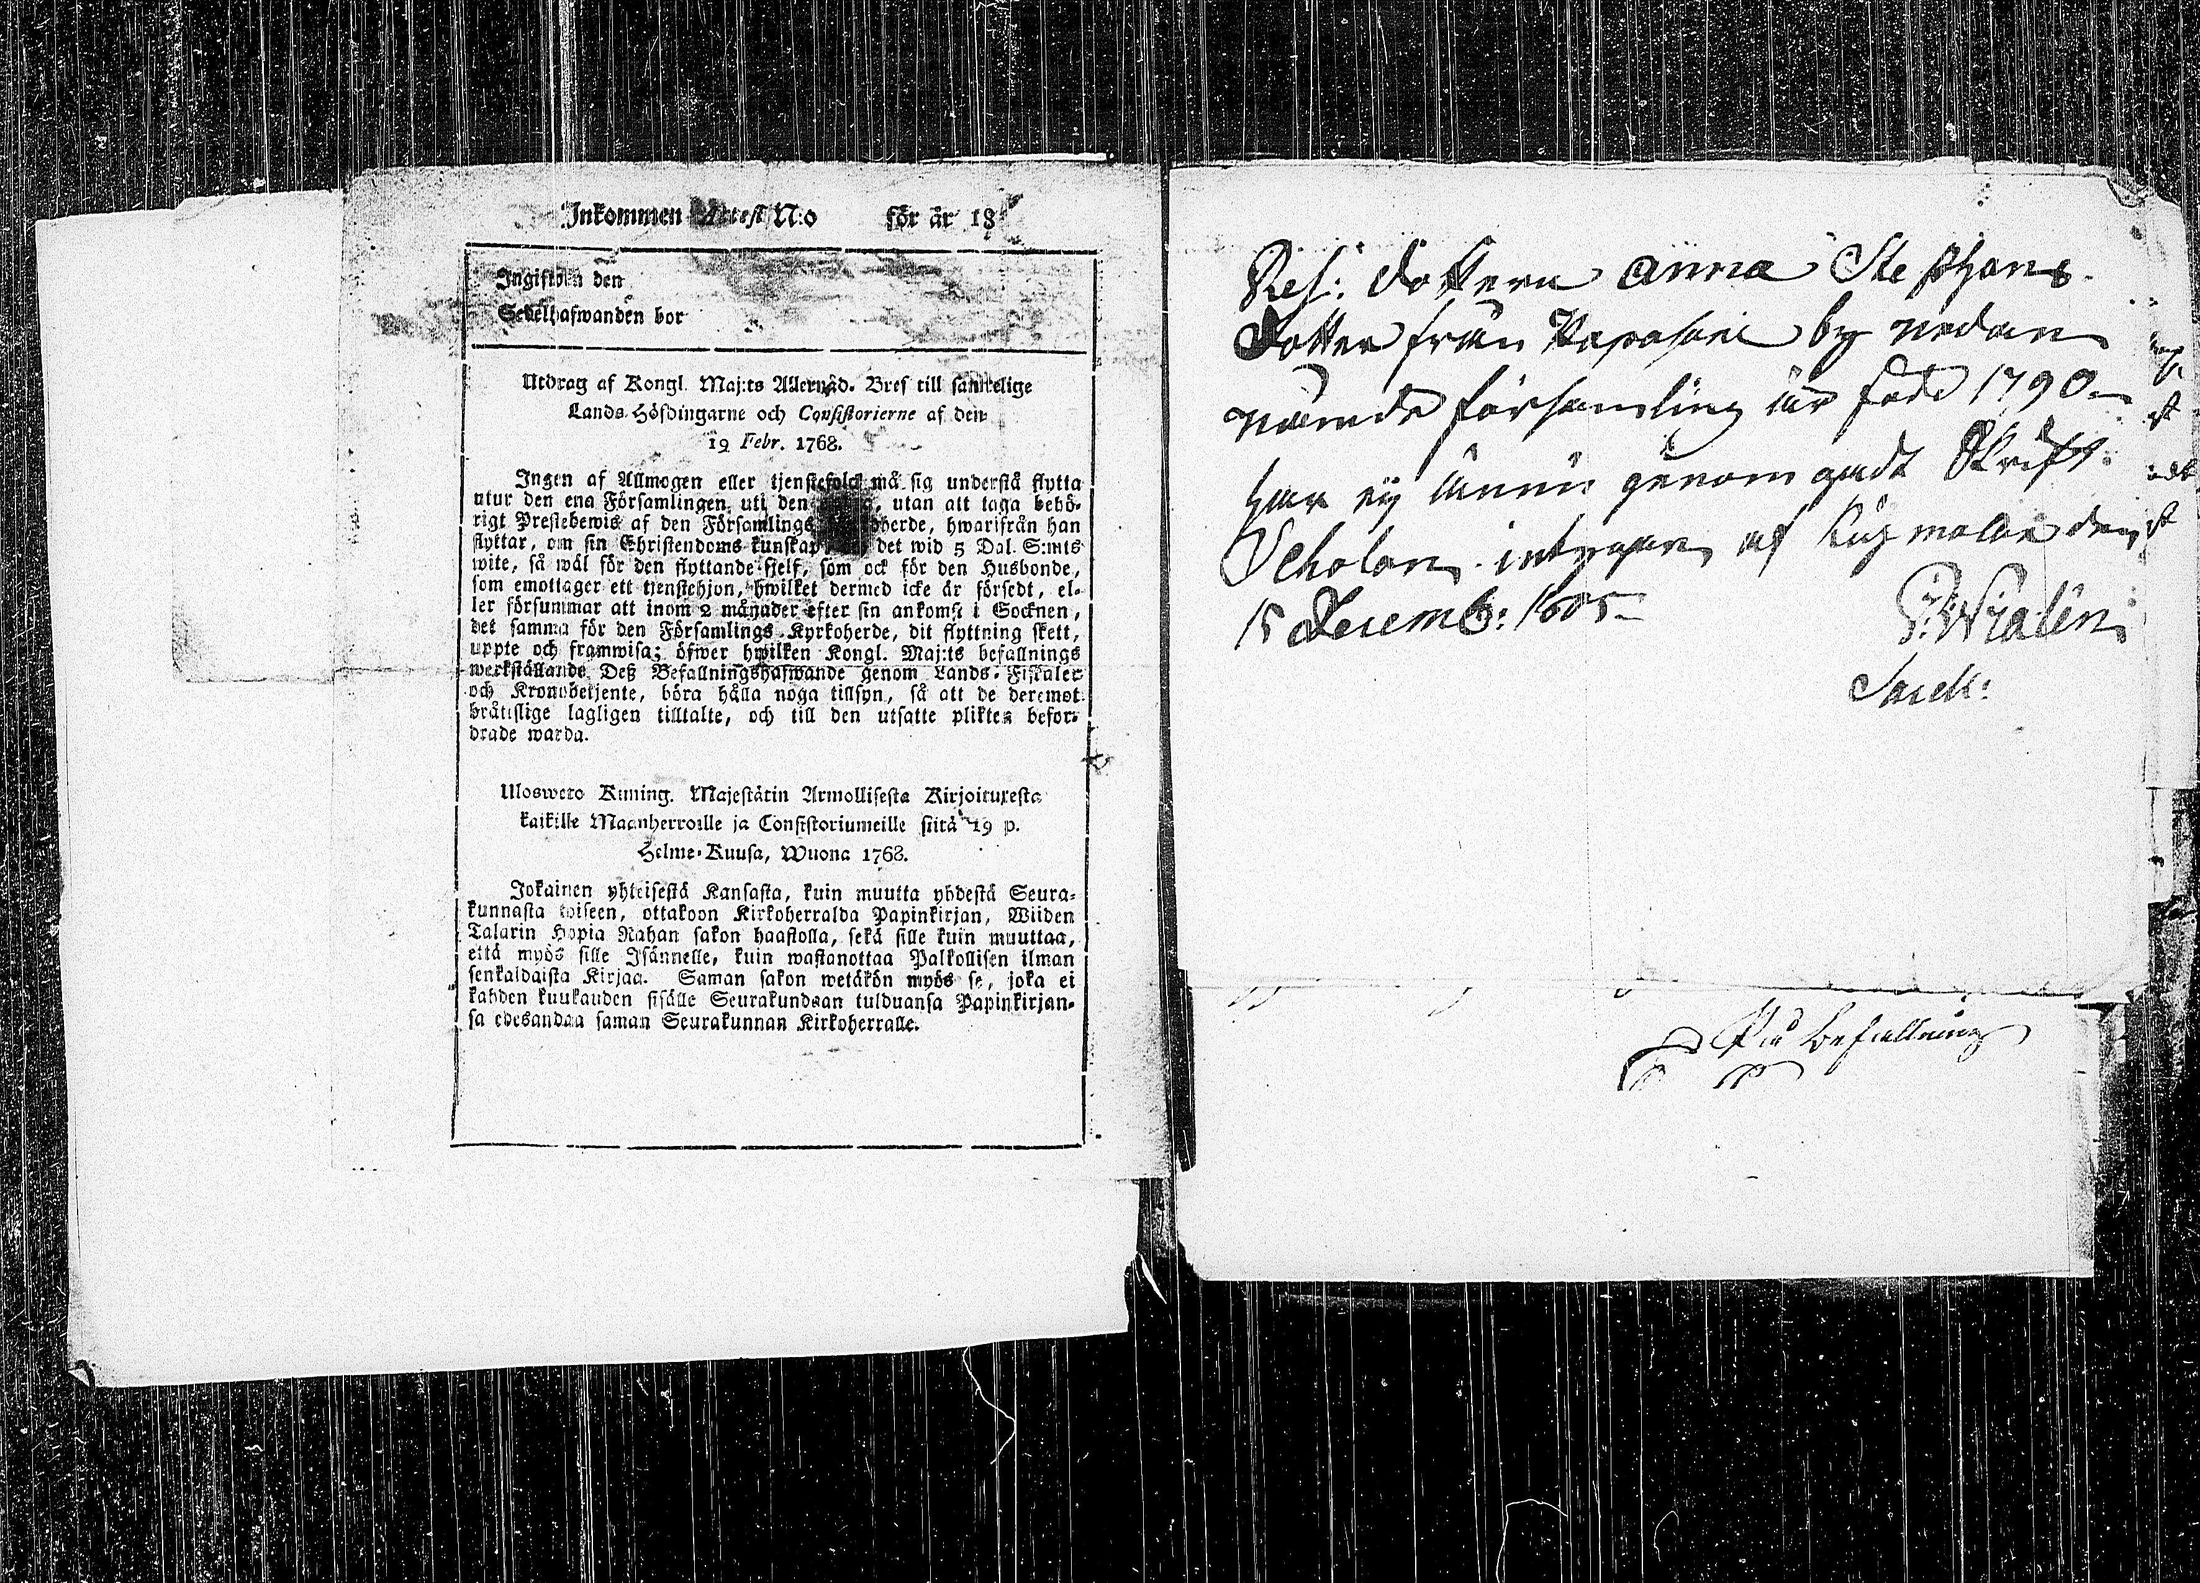 Inkommen Attest N:o för år 18
Ingifwen den
Sedelhafwanden bor
Utdrag af Kongl. Maj:ts Allernåd. Bref till samtelige
Lands-Höfdingarne och Consistorierne af den
19 Febr. 1768.
Ingen af Allmogen eller tjenstefolck må sig understå flytta
utur den ena Församlingen uti den utan att taga behö-
rigt Prestebewis af den Församlings herde, hwarifrån han
flyttar, om sin Christendoms kunskap det wid 5 Dal. S:mts
wite, så wäl för den flyttande sjelf, som ock för den Husbonde,
som emottager ett tjenstehjon, hwilket dermed icke är försedt, el-
ler försummar att inom 2 månader efter sin ankomst i Socknen,
det samma för den Församlings Kyrkoherde, dit flyttning skett,
uppte och framwisa; öfwer hwilken Kongl. Maj:ts befallnings
werkställande Deß Befallningshafwande genom Lands-Fiskaler
och Kronobetjente, böra hålla noga tillsyn, så att de deremot
bråttslige lagligen tilltalte, och till den utsatte plikten befor-
drade warda.
Ulosweto Kuning. Majestätin Armollisesta Kirjoituxesta
kaikille Maanherroille ja Consistoriumeille siitä 19 p.
Helme-Kuusa, Wuona 1768.
Jokainen yhteisestä Kansasta, kuin muutta yhdestä Seura-
kunnasta toiseen, ottakoon Kirkoherralda Papinkirjan, Wiiden
Talarin Hopia Rahan sakon haastolla, sekä sille kuin muuttaa,
että myös sille Isännelle, kuin wastanottaa Palkollisen ilman
senkaldaista Kirjaa. Saman sakon wetäkön myös se, joka ei
kahden kuukauden sisälle Seurakundaan tulduansa Papinkirjan-
sa edesandaa saman Seurakunnan Kirkoherralle.
Dottern Anna Stephans
Dotter från by nedan
nämde församling är född 1790
har ej ännu genomgådt Skrift
Scholan. intygar af den
15 Decemb: 1805
P: Wialén
Sacell:
På befallning